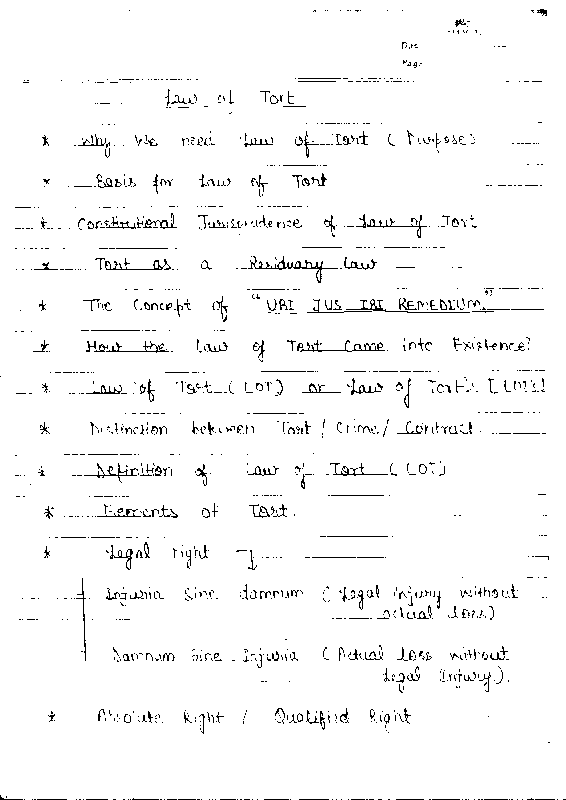 Date
Page
Law of Tort
* Why We need Law of Tort ( Purpose)
* Basis for Law of Tort
* Constitutional Jurisprudence of Law of Tort
* Tort as a Residuary Law
* The Concept of "UBI JUS IBI REMEDIUM"
* How the Law of Tort Came into Existence?
* Law of Tort ( LOT) or Law of Torts [LOTs]
* Distinction between Tort / Crime / Contract
* Definition of Law of Tort ( LOT)
* Elements of Tort.
* Legal right
Injuria Sine damnum ( Legal Injury without
actual loss)
Damnum Sine Injuria ( Actual loss without
Legal Injury).
* Absolute Right / Qualified Right